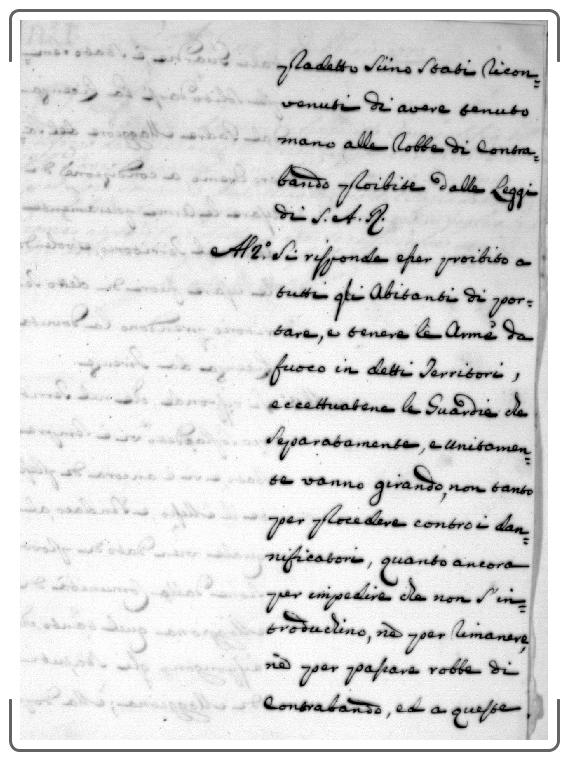 pradetto siino stati ricon=
venuti di avere tenuto
mano alle robbe di Contra=
bando proibite dalle Leggi
di S. A. R.
Al 2.º Si risponde esser proibito a
tutti gli Abitanti di por=
tare, e tenere le Arme da
fuoco in detti Territori,
eccettuatene le Guardie che
Separatamente, e Unitamen=
te vanno girando, non tanto
per procedere contro i dan=
nificatori, quanto ancora
per impedire che non s'in=
troduchino, nè per rimanere,
nè per passare robbe di
Contrabando, ed a queste